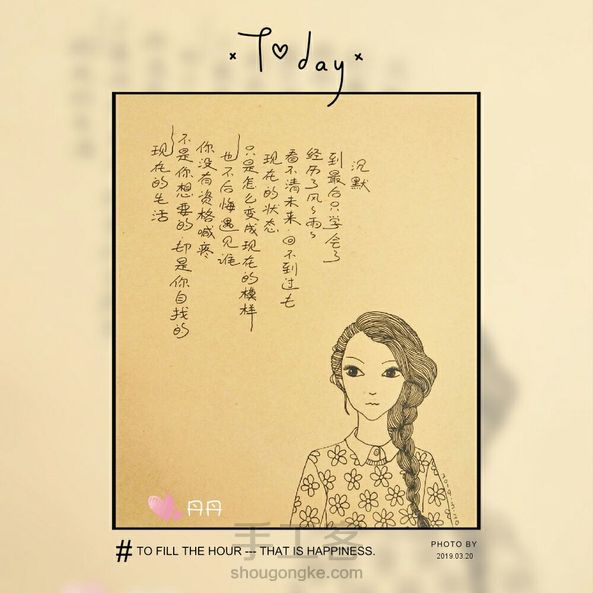 Today
现在的生活
不是你想要的·却是你自找的
你没有资格喊疼
也不后悔遇见谁
只是怎么变成现在的模样
现在的状态
看不清未来·回不到过去
经历了风々雨々
到最后只学会了
沉默
丹丹
# TO FILL THE HOUR --- THAT IS HAPPINESS.
PHOTO BY
2019.03.20
手工客
shougongke.com